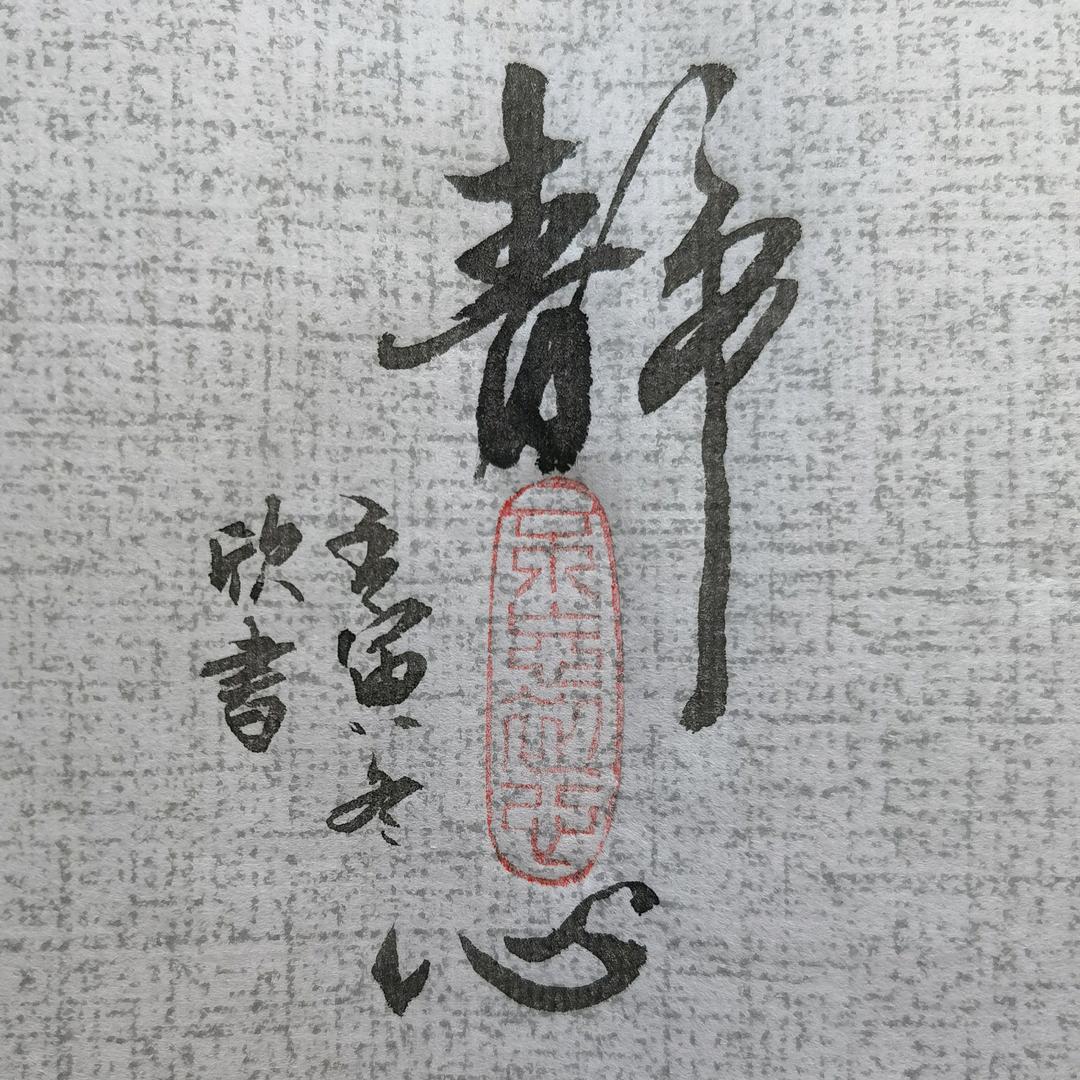 静心
壬寅冬
欣书